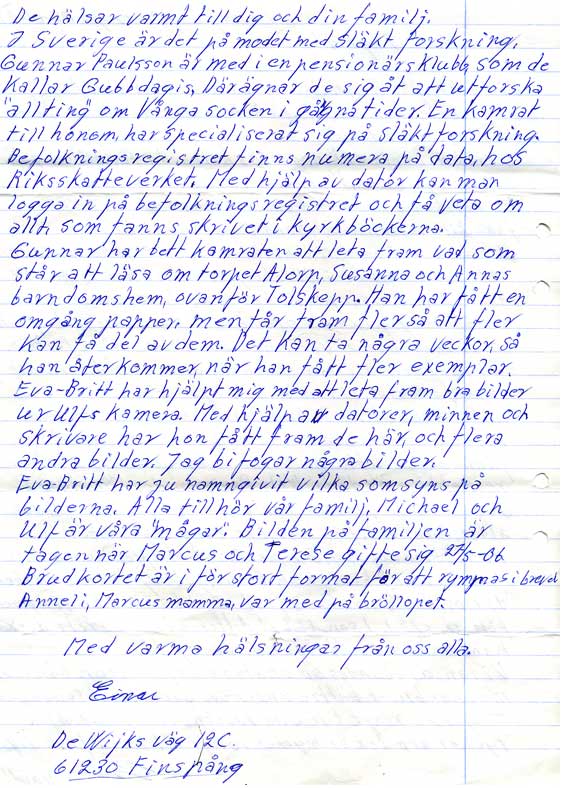 De hälsar varmt till dig och din familj.
I Sverige är det på modet med släkt forskning.
Gunnar Paulsson är med i en pensionärsklubb, som de
kallar Gubbdagis. Där ägnar de sig åt att utforska
"allting" om Vånga socken i gångna tider. En kamrat
till honom, har specialiserat sig på släktforskning.
Befolkningsregistret finns numera på data, hos
Riksskatteverket. Med hjälp av dator kan man
logga in på befolkningsregistret och få veta om
allt, som fanns skrivet i kyrkböckerna.
Gunnar har bett kamraten att leta fram vad som
står att läsa om torpet Alorp, Susanna och Annas
barndomshem, ovanför Tolskepp. Han har fått en
omgång papper, men får fram fler så att fler
kan få del av dem. Det kan ta några veckor, så
han återkommer, när han fått fler exemplar.
Eva-Britt har hjälpt mig med att leta fram bra bilder
ur Ulfs kamera. Med hjälp av datorer, minnen och
skrivare har hon fått fram de här, och flera
andra bilder. Jag bifogar några bilder.
Eva-Britt har ju namngivit vilka som syns på
bilderna. Alla tillhör vår familj. Michael och
Ulf är våra "mågar". Bilden på familjen är
tagen när Marcus och Terese gifte sig 27/5-06
Brudkortet är i för stort format för att rymmas i brevet
Anneli, Marcus mamma, var med på bröllopet.
Med varma hälsningar från oss alla.
Einar
De Wijks väg 12C.
61230 Finspång